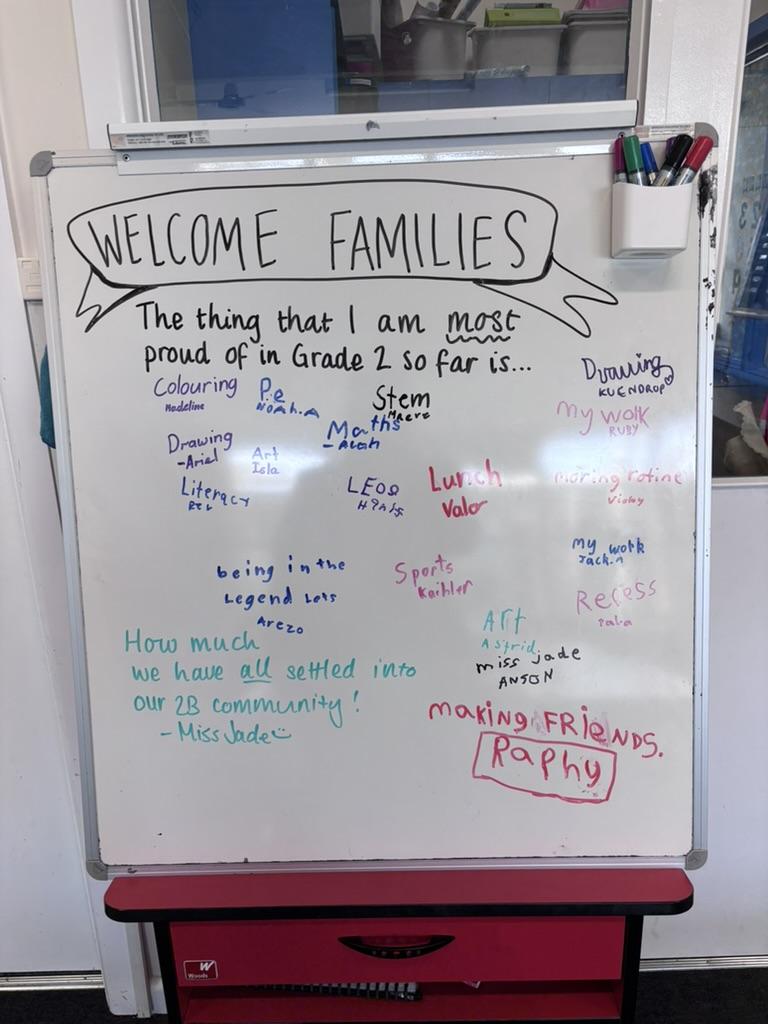 WELCOME FAMILIES
The thing that I am most
proud of in Grade 2 so far is...
Colouring
Madeline
P.e
NOAH.A
Stem
Maeve
Drawing
KUENDROP
My work
RUBY
Maths
Drawing
-Ariel
Art
Isla
Literacy
LEOs
Lunch
Valor
moring rotine
My work
Jack.A
being in the
Legend Lets
Arezo
Sports
Recess
Art
Astrid
miss jade
ANSON
How much
we have all settled into
our 2B community!
- Miss Jade
making FRIeNDS.
Raphy
W
Woods